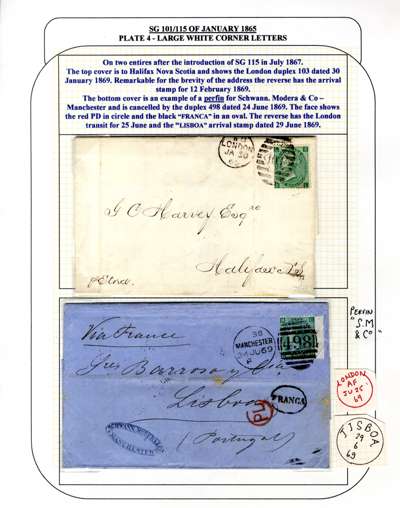 SG 101/115 OF JANUARY 1865
PLATE 4 - LARGE WHITE CORNER LETTERS
On two entires after the introduction of SG 115 in July 1867.
The top cover is to Halifax Nova Scotia and shows the London duplex 103 dated 30
January 1869. Remarkable for the brevity of the address the reverse has the arrival
stamp for 12 February 1869.
The bottom cover is an example of a perfin for Schwann. Modera & Co –
Manchester and is cancelled by the duplex 498 dated 24 June 1869. The face shows
the red PD in circle and the black "FRANCA" in an oval. The reverse has the London
transit for 25 June and the "LISBOA" arrival stamp dated 29 June 1869.
LONDON
JA 30
69
G C Harvey Esqre
Halifax
Via France
38
MANCHESTER
24 JU 69
498
Barroso y Cia
Lisboa
(Portugal)
FRANCA
PD
MANCHESTER
PERFIN
"S.M
& Co"
LONDON
AF
JU 25
69
LISBOA
29
6
69